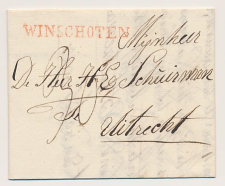 WINSCHOTEN
Mijnheer
De Heer H. Schuurman
Utrecht